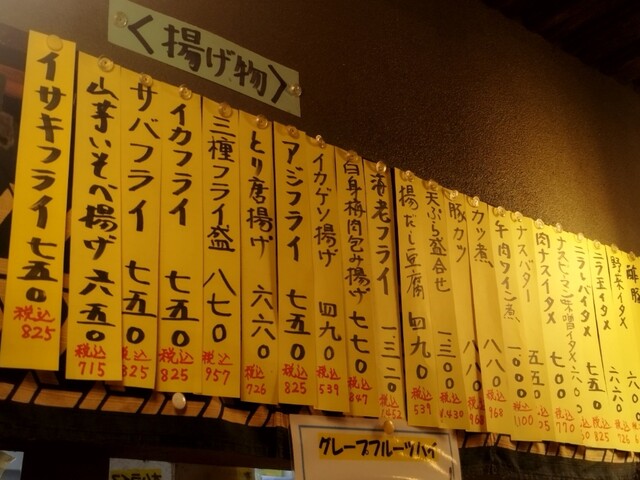 <揚げ物>
イサキフライ 七五〇
税込
825
山芋いそべ揚げ 六五〇
税込
715
サバフライ 七五〇
税込
825
イカフライ 七五〇
税込
825
三種フライ盛 八七〇
税込
957
とり唐揚げ 六六〇
税込
726
アジフライ 七五〇
税込
825
イカゲソ揚げ 四九〇
税込
539
白身梅肉包み揚げ 七七〇
税込
847
海老フライ 一三二〇
税込
1452
揚だし豆腐 四九〇
税込
539
天ぷら盛合せ 一三〇〇
税込
1,430
豚カツ 八八〇
税込
968
カツ煮 八八〇
税込
968
牛肉ワイン煮 一〇〇〇
税込
1100
ナスバター 五五〇
肉ナスイタメ 七〇〇
税込
770
ナスピーマン味噌イタメ 六〇〇
ニラレバイタメ 七五〇
税込
825
ニラ玉イタメ 六六〇
税込
726
野菜イタメ 六〇
グレープフルーツハイ